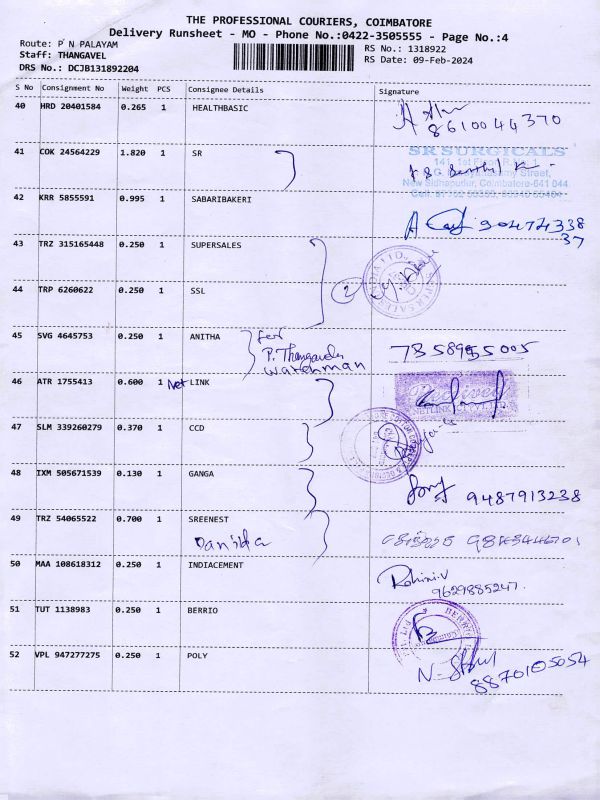 THE PROFESSIONAL COURIERS, COIMBATORE
Delivery Runsheet - MO - Phone No.:0422-3505555 - Page No.:4
Route: P N PALAYAM
RS No.: 1318922
Staff: THANGAVEL
RS Date: 09-Feb-2024
DRS No.: DCJB131892204
S No Consignment No Weight PCS Consignee Details Signature
40 HRD 20401584 0.265 1 HEALTHBASIC
8610044370
41 COK 24564229 1.820 1 SR
SR SURGICALS
New Sidhapudur, Coimbatore-641 044
42 KRR 5855591 0.995 1 SABARIBAKERI
9047433837
43 TRZ 315165448 0.250 1 SUPERSALES
44 TRP 6260622 0.250 1 SSL
2
45 SVG 4645753 0.250 1 ANITHA
for
P. Thangavelu
watchman
46 ATR 1755413 0.600 1 Net LINK
Received
47 SLM 339260279 0.370 1 CCD
48 IXM 505671539 0.130 1 GANGA
9487913238
49 TRZ 54065522 0.700 1 SREENEST
50 MAA 108618312 0.250 1 INDIACEMENT
Rohini.V
9629885247.
51 TUT 1138983 0.250 1 BERRIO
52 VPL 947277275 0.250 1 POLY
8870105054